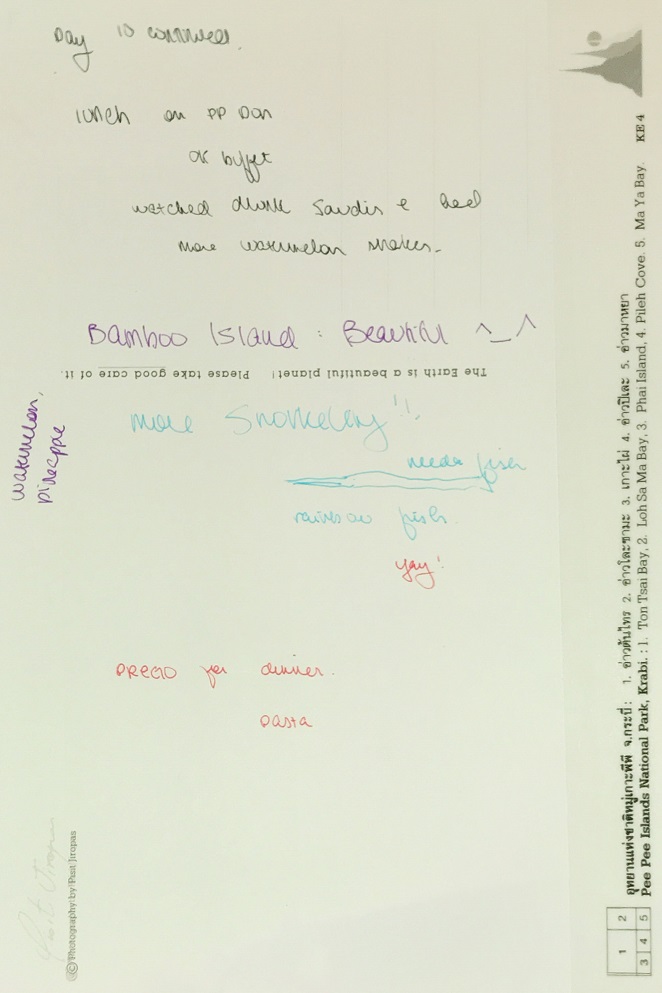 Day 10 continued.
lunch on PP Don
ok buffet
watched drunk Saudis e beel
more watermelon shakes.
Bamboo Island : Beautiful ^_^
The Earth is a beautiful planet! Please take good care of it.
more Snorkeling!!
watermelon,
pineapple
needle fish
rainbow fish.
yay!
PRECIO for dinner.
pasta
© Photography by Pisit Jiropas
Pisit Jiropas
KE 4
อุทยานแห่งชาติหมู่เกาะพีพี จ.กระบี่ : 1. อ่าวต้นไทร 2. อ่าวโละซามะ 3. เกาะไผ่ 4. อ่าวปิเละ 5. อ่าวมาหยา
Pee Pee Islands National Park, Krabi. : 1. Ton Tsai Bay, 2. Loh Sa Ma Bay, 3. Phai Island, 4. Pileh Cove. 5. Ma Ya Bay.
1 2
3 4 5